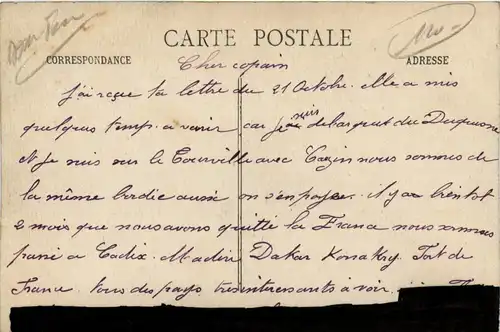 CARTE POSTALE
CORRESPONDANCE
ADRESSE
120-
Cher copain
J'ai reçue ta lettre du 21 Octobre. elle a mis
quelques temps a venir car je suis debarquat du Duquesne
et je suis sur le Tourville avec Cazin nous sommes de
la même bordée aussi on s'en paye. il y a bientot
2 mois que nous avons quitté la France nous sommes
passé a Cadix. Madère Dakar Konakry. Fort de
France. tous des pays tres interessants á voir